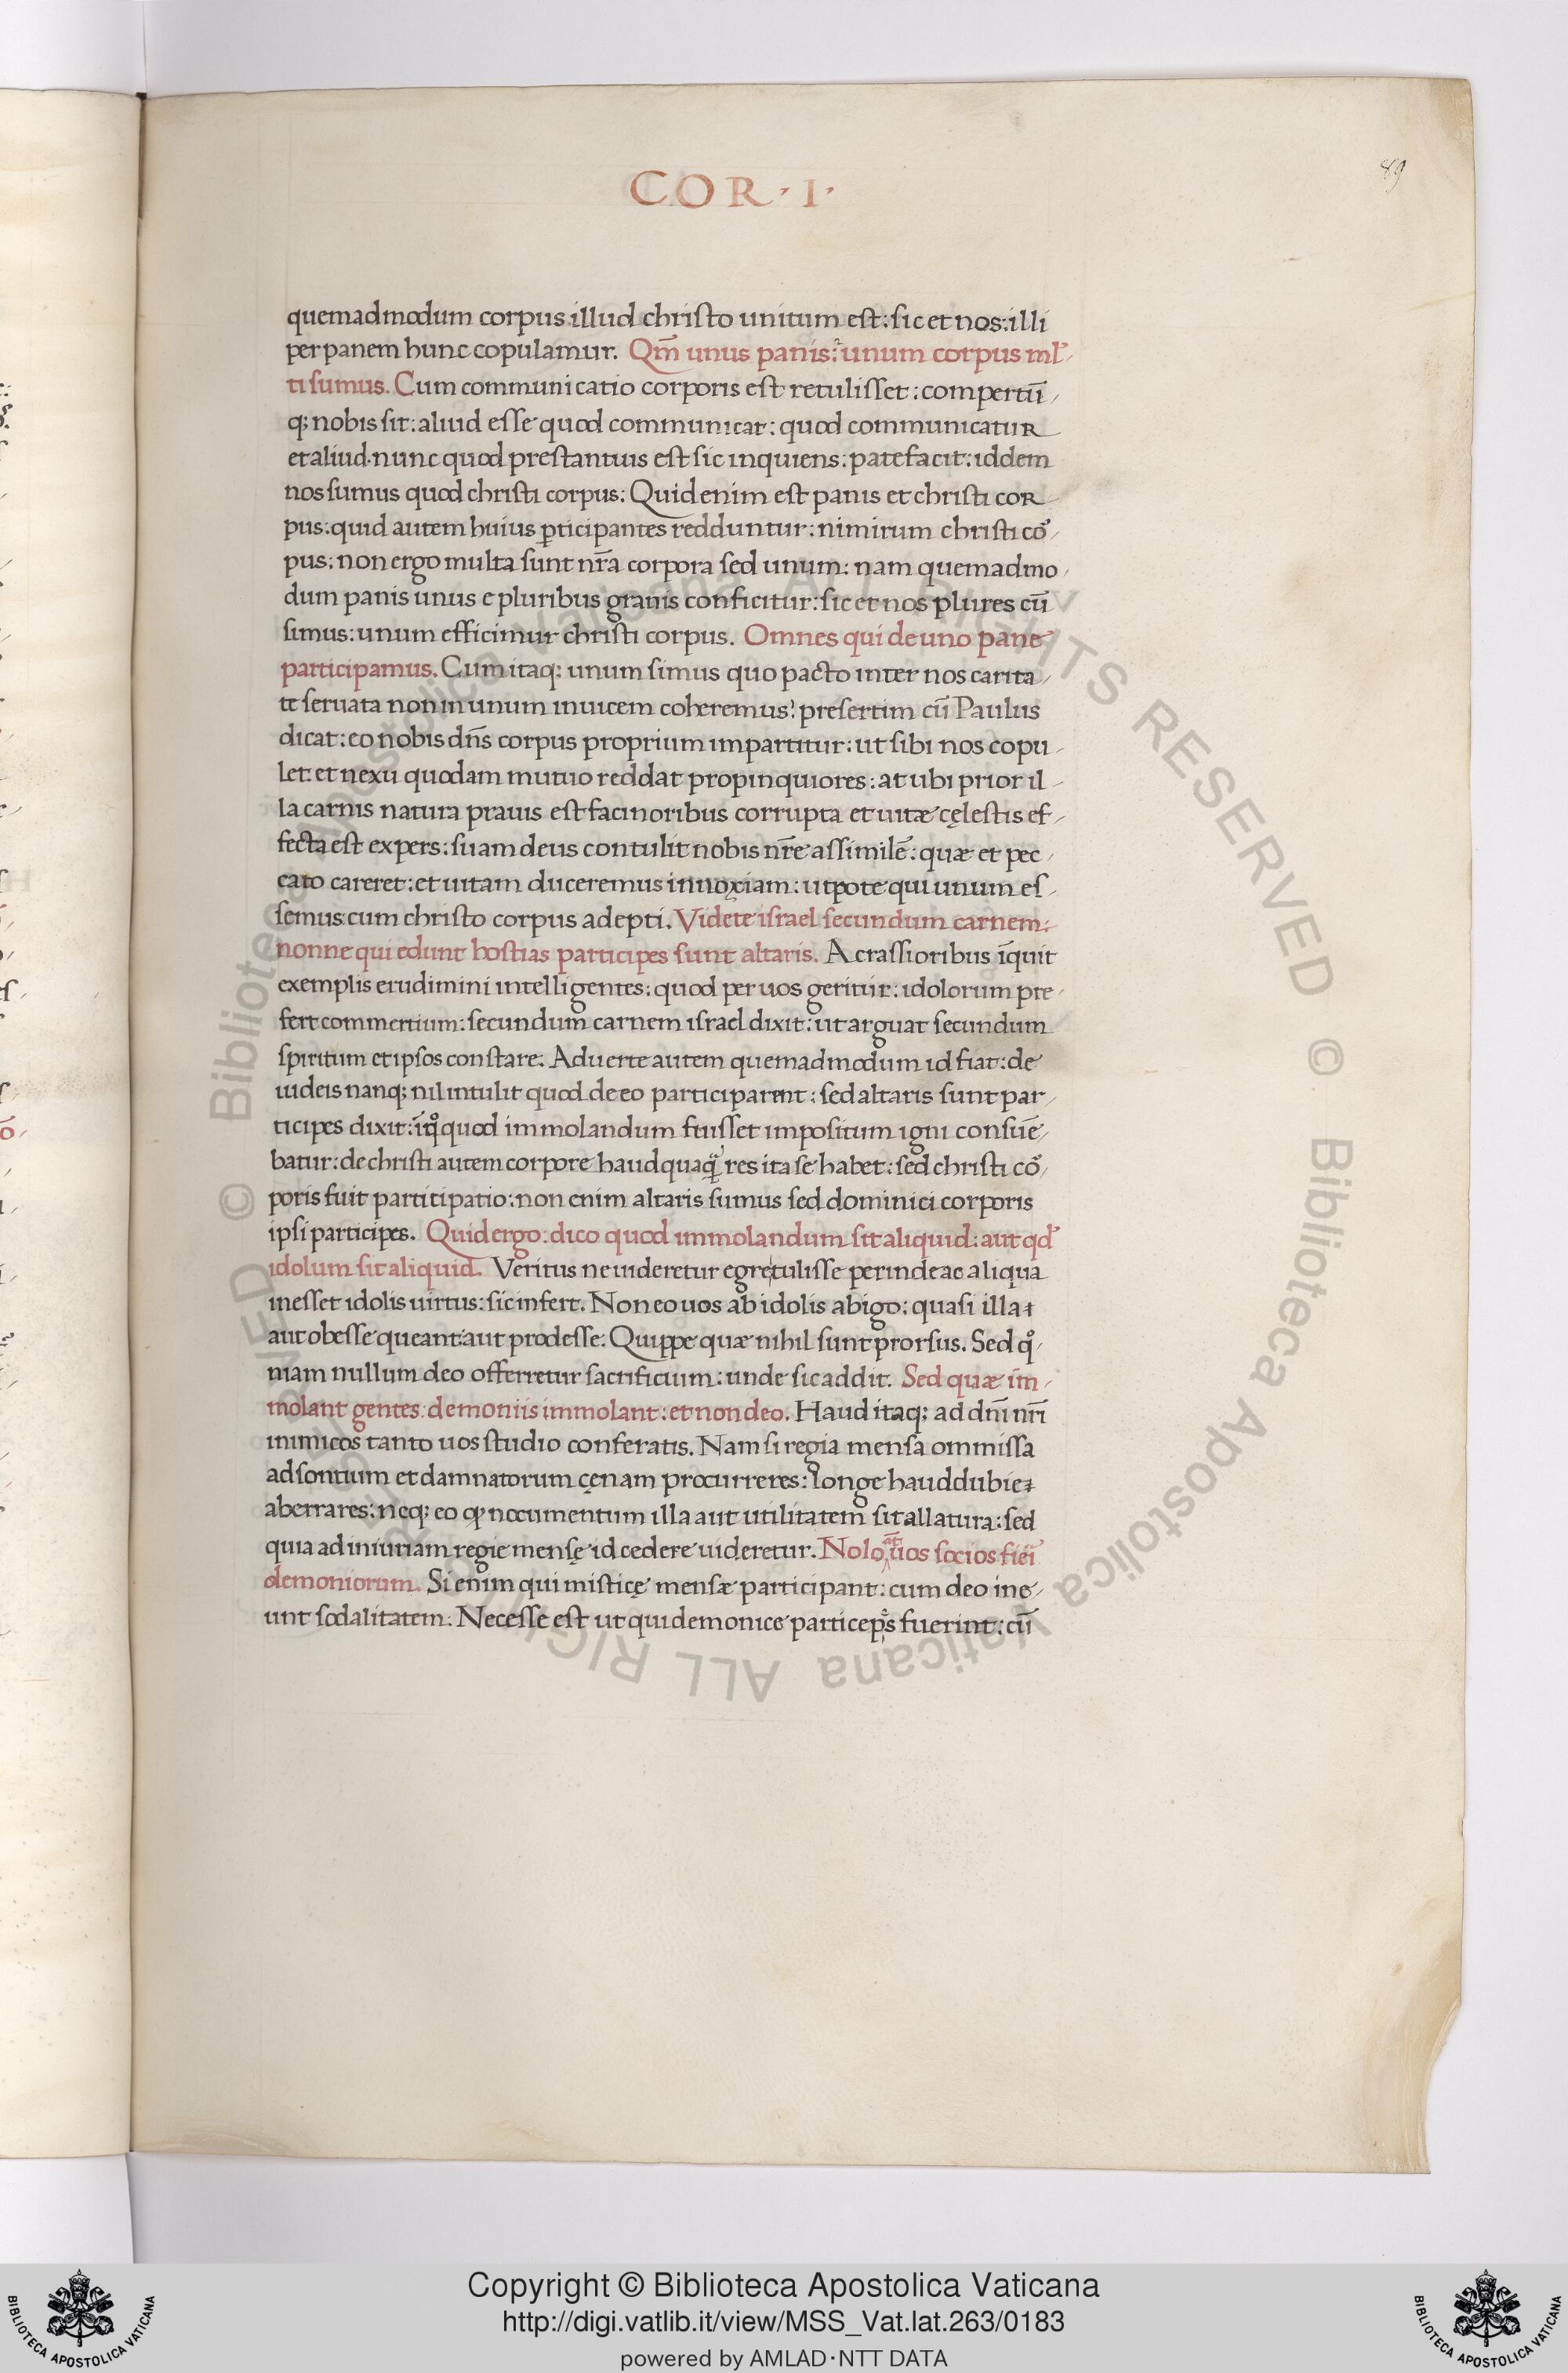 COR · I ·
89
quemadmodum corpus illud christo unitum est: sic et nos: illi
per panem hunc copulamur. Qm̃ unus panis: unum corpus ml̃
ti sumus. Cum communicatio corporis est retulisset: compertū
q; nobis sit: aliud esse quod communicat: quod communicatur
et aliud. nunc quod prestantius est sic inquiens: patefacit: iddem
nos sumus quod christi corpus: Quid enim est panis et christi cor
pus: quid autem huius ꝑticipantes redduntur: nimirum christi co᷒
pus: non ergo multa sunt nr̄a corpora sed unum: nam quemadmo
dum panis unus e pluribus granis conficitur: sic et nos plures cū
simus: unum efficimur christi corpus. Omnes qui de uno pane
participamus. Cum itaq; unum simus quo pacto inter nos carita
te seruata non in unum inuicem coheremus? presertim cū Paulus
dicat: eo nobis dn̄s corpus proprium impartitur: ut sibi nos copu
let: et nexu quodam mutuo reddat propinquiores: at ubi prior il
la carnis natura prauis est facinoribus corrupta et uitæ cęlestis ef
fecta est expers: suam deus contulit nobis nr̄e assimilē: quæ et pec
cato careret: et uitam duceremus innoxiam: utpote qui unum es
semus: cum christo corpus adepti. Videte israel secundum carnem:
nonne qui edunt hostias participes sunt altaris. A crassioribus īquit
exemplis erudimini intelligentes: quod per uos geritur: idolorum pre
fert commertium: secundum carnem israel dixit: ut arguat secundum
spiritum et ipsos constare. Aduerte autem quemadmodum id fiat: de
iudeis nanq; nil intulit quod de eo participarent: sed altaris sunt par
ticipes dixit: quod immolandum fuisset impositum igni consūe
batur: de christi autem corpore haudquaq̃ res ita se habet: sed christi co᷒
poris fuit participatio: non enim altaris sumus sed dominici corporis
ipsi participes. Quid ergo: dico quod immolandum sit aliquid: aut qd᷒
idolum sit aliquid. Veritus ne uideretur egre tulisse perinde ac aliqua
inesset idolis uirtus: sic infert. Non eo uos ab idolis abigo: quasi illa
aut obesse queant: aut prodesse. Quippe quæ nihil sunt prorsus. Sed qº
niam nullum deo offerretur sacrificium: unde sic addit. Sed quæ im̄
molant gentes: demoniis immolant: et non deo. Haud itaq; ad dn̄i nr̄i
inimicos tanto uos studio conferatis. Nam si regia mensa ommissa
ad sontium et damnatorum cęnam procurreres: longe haud dubie
aberrares: neq; eo ꝙ nocumentum illa aut utilitatem sit allatura: sed
quia ad iniuriam regie mensę id cedere uideretur. Nolo at̄ uos socios fiei᷒
demoniorum. Si enim qui misticę mensæ participant: cum deo ine
unt sodalitatem: Necesse est ut qui demonice particeps fuerint: cū
© Biblioteca Apostolica Vaticana ALL RIGHTS RESERVED © Biblioteca Apostolica Vaticana ALL RIGHTS RESERVED
Copyright © Biblioteca Apostolica Vaticana
http://digi.vatlib.it/view/MSS_Vat.lat.263/0183
powered by AMLAD·NTT DATA
BIBLIOTECA APOSTOLICA VATICANA
BIBLIOTECA APOSTOLICA VATICANA